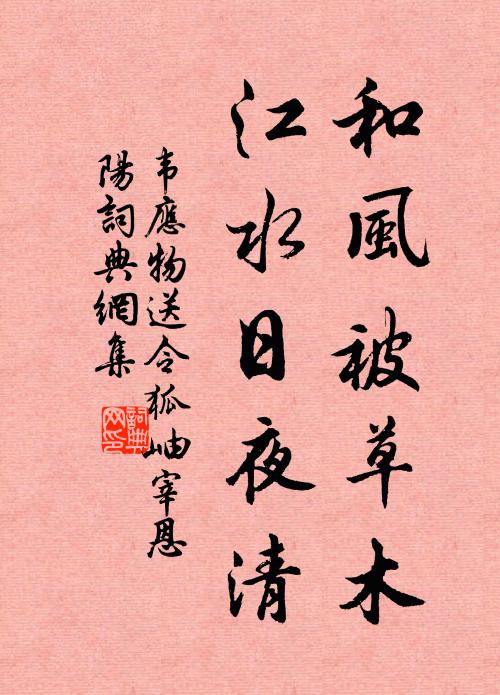 和風被草木
江水日夜清
韦應物送令狐岫宰恩
陽詞典網集
詞典
网印